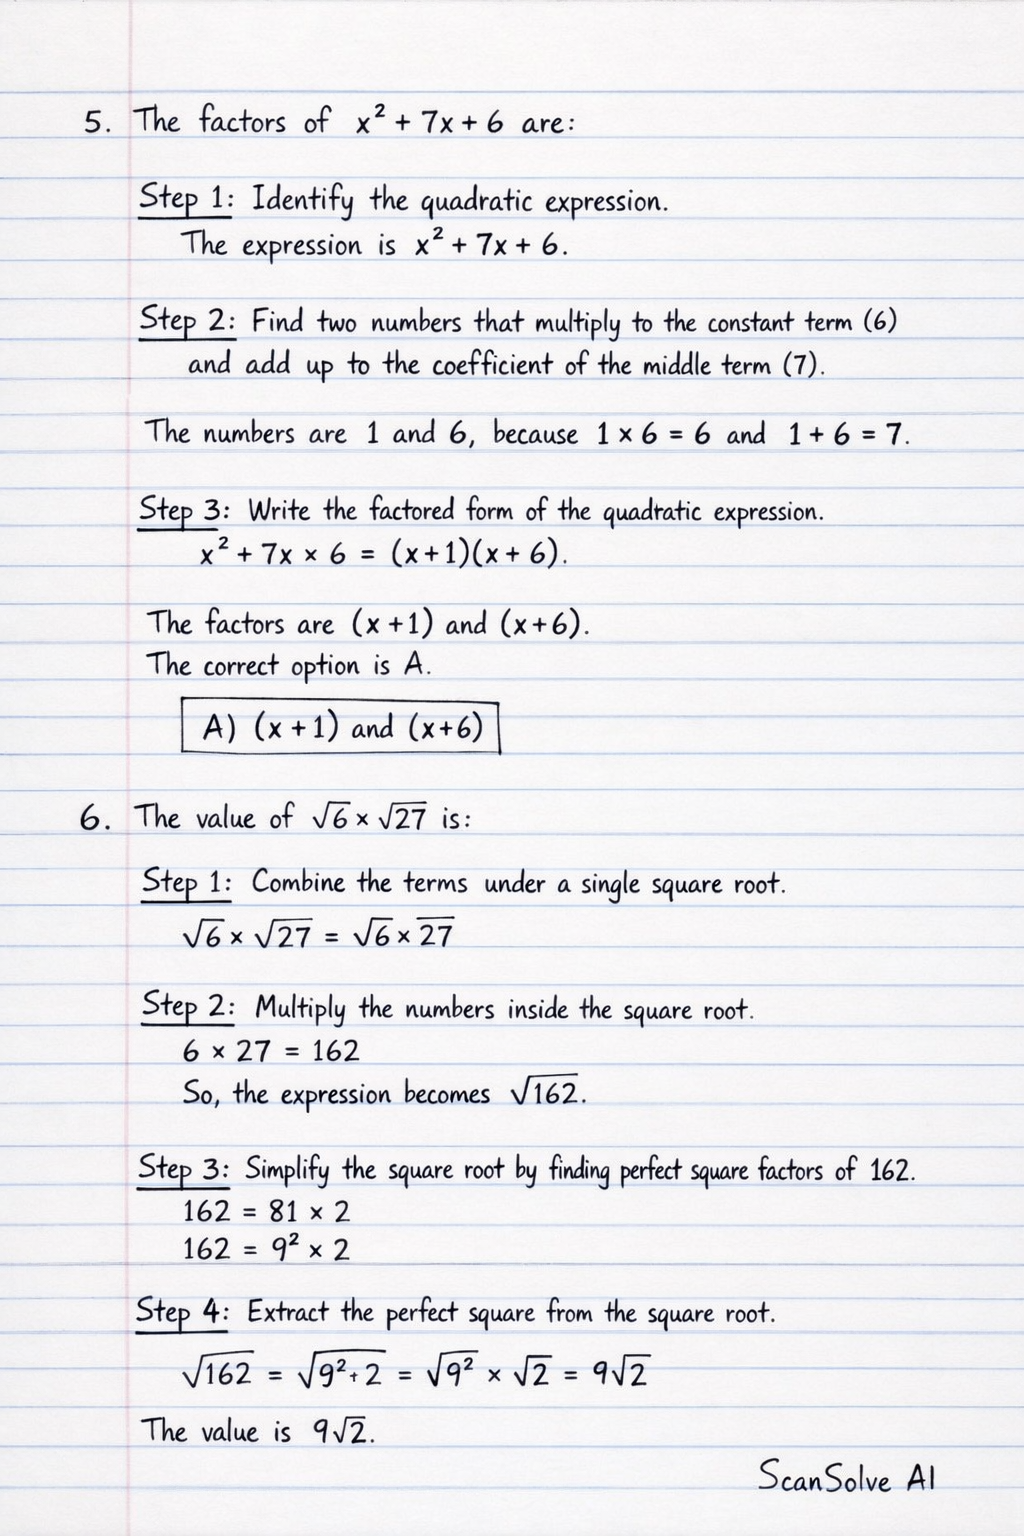 5. The factors of x² + 7x + 6 are:
Step 1: Identify the quadratic expression.
The expression is x² + 7x + 6.
Step 2: Find two numbers that multiply to the constant term (6)
and add up to the coefficient of the middle term (7).
The numbers are 1 and 6, because 1 × 6 = 6 and 1 + 6 = 7.
Step 3: Write the factored form of the quadratic expression.
x² + 7x × 6 = (x+1)(x + 6).
The factors are (x+1) and (x+6).
The correct option is A.
A) (x + 1) and (x+6)
6. The value of √6 × √27 is:
Step 1: Combine the terms under a single square root.
√6 × √27 = √6 × 27
Step 2: Multiply the numbers inside the square root.
6 × 27 = 162
So, the expression becomes √162.
Step 3: Simplify the square root by finding perfect square factors of 162.
162 = 81 × 2
162 = 9² × 2
Step 4: Extract the perfect square from the square root.
√162 = √9²+2 = √9² × √2 = 9√2
The value is 9√2.
ScanSolve AI